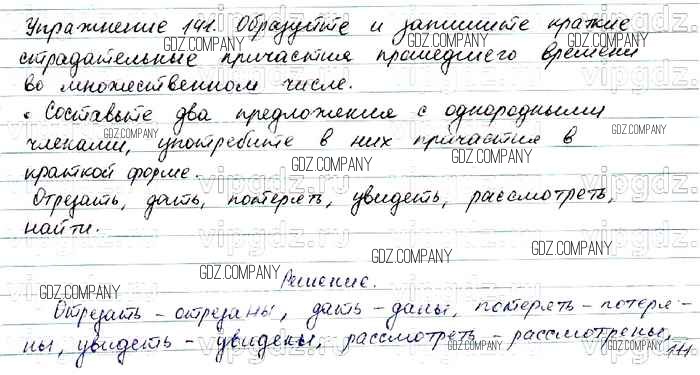 Упражнение 141. Образуйте и запишите краткие
страдательные причастия прошедшего времени
во множественном числе.
• Составьте два предложения с однородными
членами, употребите в них причастия в
краткой форме.
Отрезать, дать, потерять, увидеть, рассмотреть,
найти.
Решение.
Отрезать – отрезаны, дать – даны, потерять – потеря-
ны, увидеть – увидены, рассмотреть – рассмотрены,
141
GDZ.COMPANY
vipgdz.ru